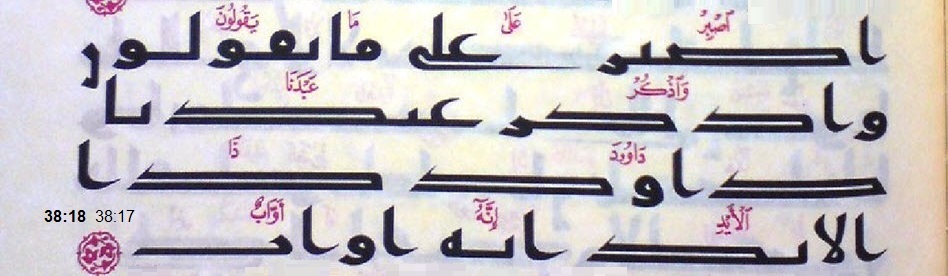 ٱصْبِرْ عَلَىٰ مَا يَقُولُونَ
اصبر على ما يقولون
وَٱذْكُرْ عَبْدَنَا
واذكر عبدنا
دَاوُۥدَ ذَا
داود ذا
38:18 38:17
ٱلْأَيْدِ إِنَّهُۥٓ أَوَّابٌ
الايد انه اواب